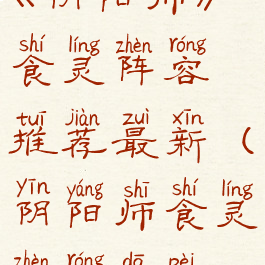 《阴阳师》
shí líng zhèn róng
食灵阵容
tuī jiàn zuì xīn
推荐最新（
yīn yáng shī shí líng
阴阳师食灵
zhèn róng dā pèi